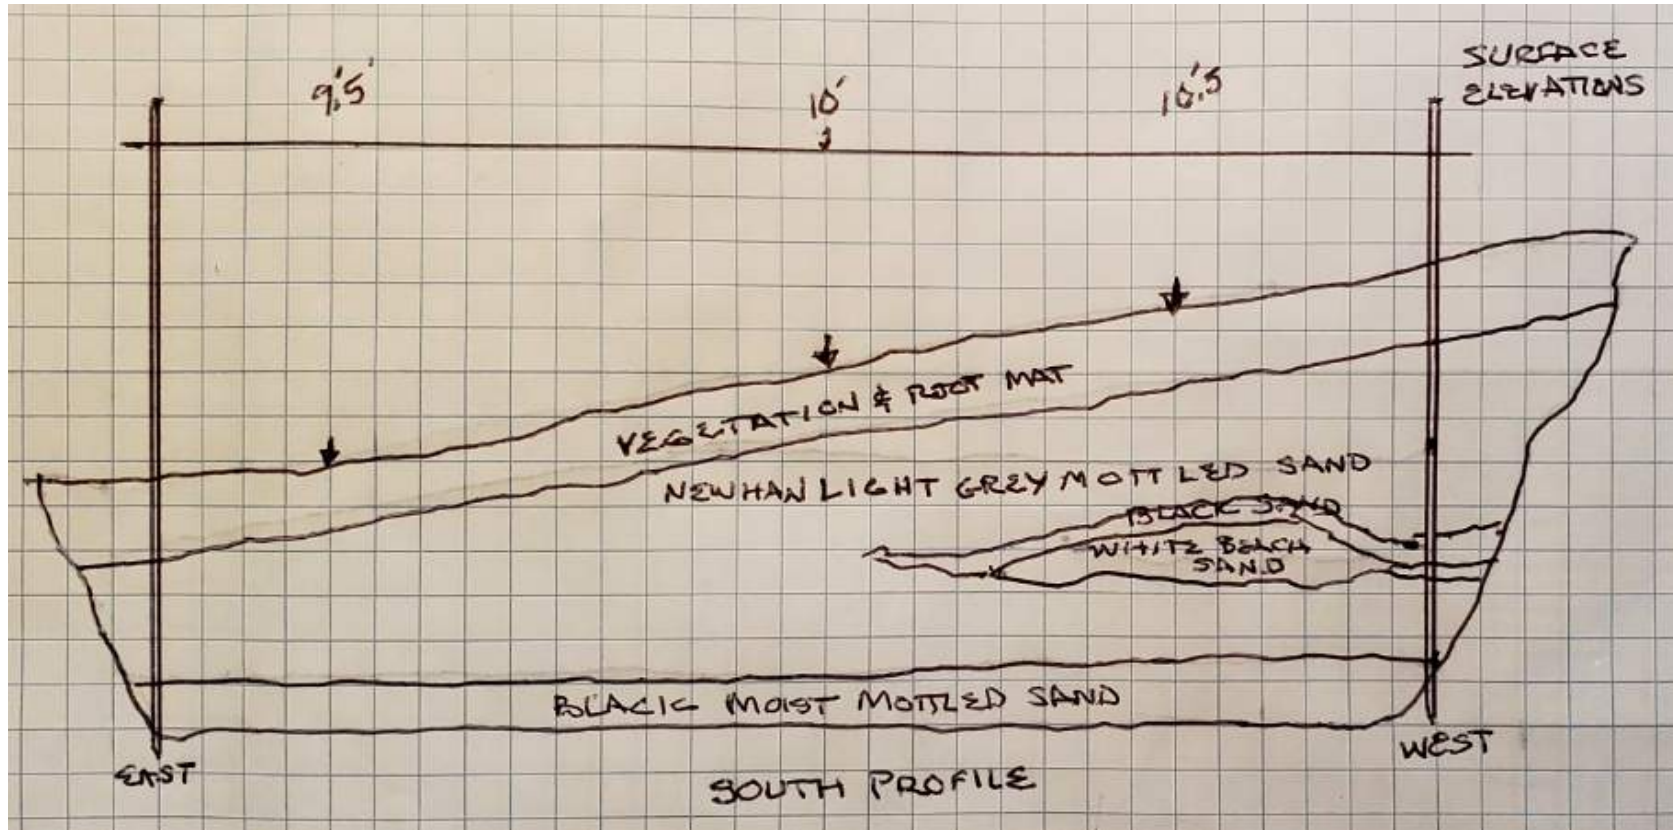 SURFACE
ELEVATIONS
9.'5
10'
10.'5
VEGETATION & ROOT MAT
NEWHAN LIGHT GREY MOTTLED SAND
BLACK SAND
WHITE BEACH
SAND
BLACK MOIST MOTTLED SAND
EAST
WEST
SOUTH PROFILE